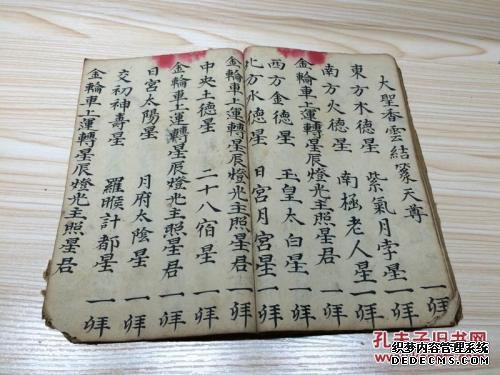 大聖香雲結篆天尊 一拜
東方木德星 紫氣月孛星 一拜
南方火德星 南極老人星 一拜
金輪車上運轉星辰燈光主照星君 一拜
西方金德星 玉皇太白星 一拜
北方水德星 日宮月宮星 一拜
金輪車上運轉星辰燈光主照星君 一拜
中央土德星 二十八宿星 一拜
金輪車上運轉星辰燈光主照星君 一拜
日宮太陽星 月府太陰星 一拜
交初神壽星 羅睺計都星 一拜
金輪車上運轉星辰燈光主照星君 一拜
孔夫子旧书网
织梦内容管理系统
DEDECMS.COM